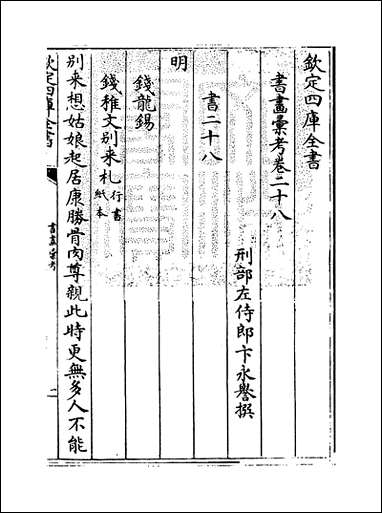 欽定四庫全書
書畫彙考卷二十八
刑部左侍郎卞永譽撰
書二十八
明
錢龍錫
錢稚文別来札行書紙本
別来想姑娘起居康勝骨肉尊親此時更無多人不能
欽定四庫全書
書畫彙考
一